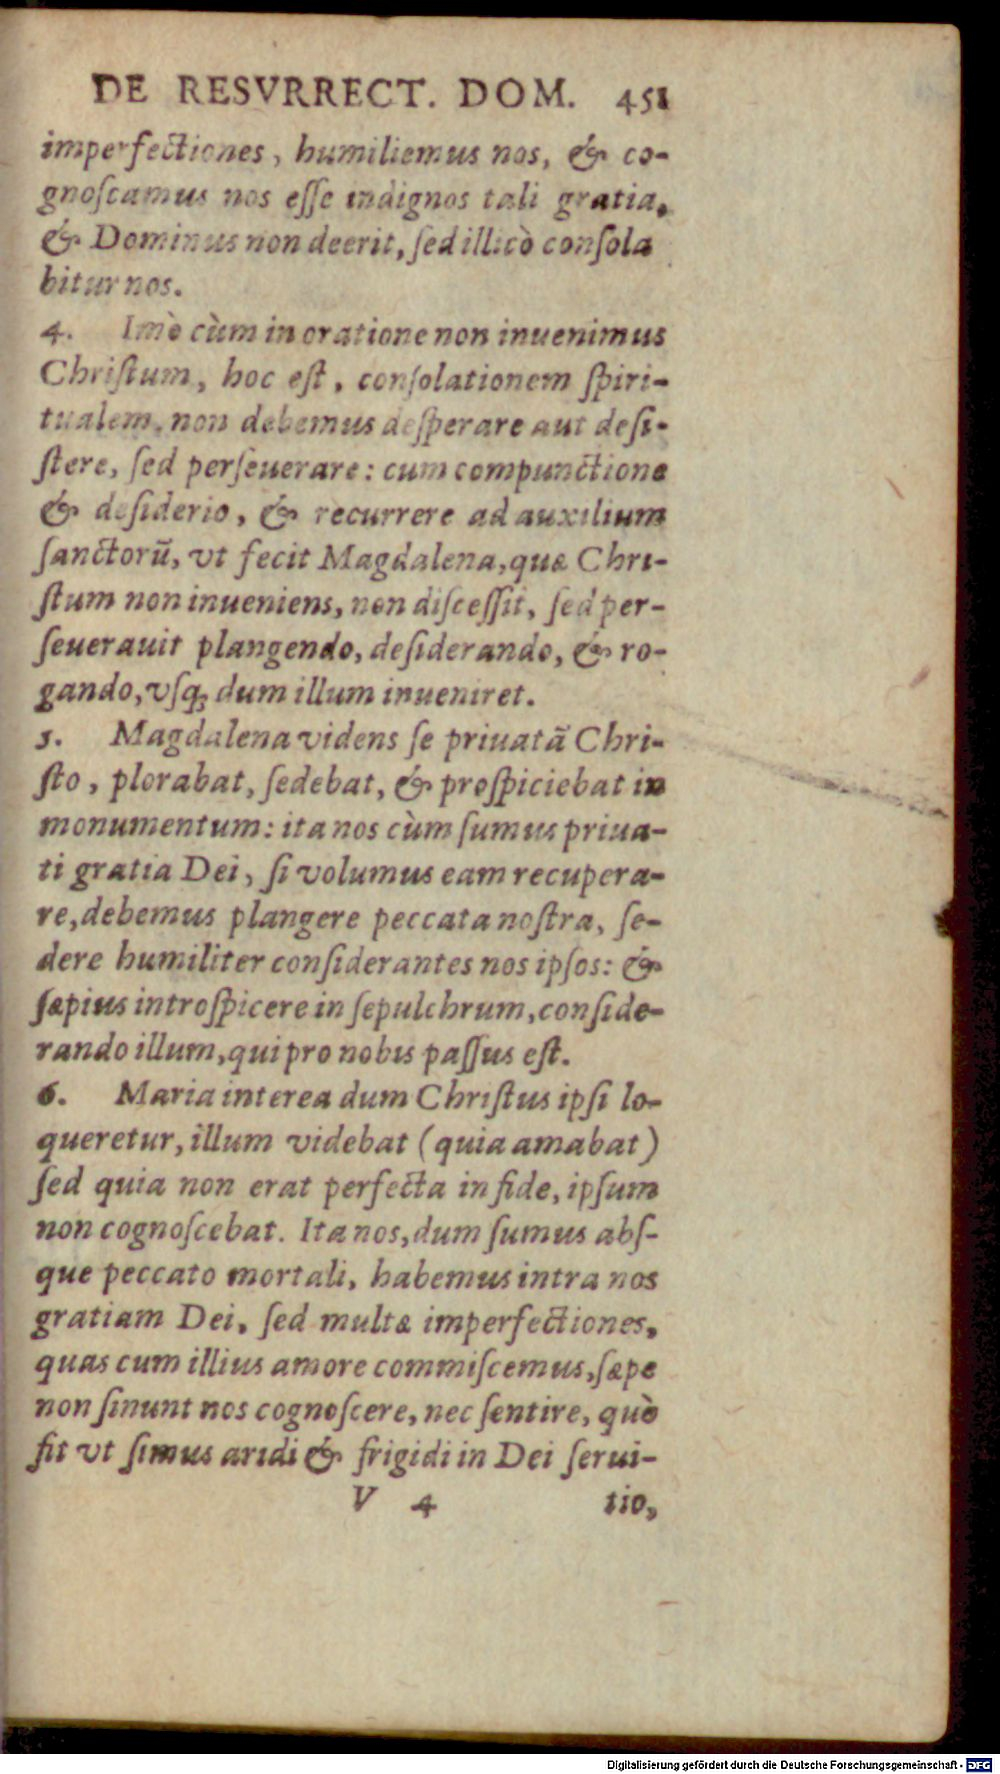 DE RESVRRECT. DOM. 451
imperfectiones, humiliemus nos, & co-
gnoſcamus nos eſſe indignos tali gratia,
& Dominus non deerit, ſed illicò conſola
bitur nos.
4. Imò cùm in oratione non inuenimus
Chriſtum, hoc eſt, conſolationem ſpiri-
tualem, non debemus deſperare aut deſi-
ſtere, ſed perſeuerare: cum compunctione
& deſiderio, & recurrere ad auxilium
ſanctorū, vt fecit Magdalena, quæ Chri-
ſtum non inueniens, non diſceſſit, ſed per-
ſeuerauit plangendo, deſiderando, & ro-
gando, vſq; dum illum inueniret.
5. Magdalena videns ſe priuatã Chri-
ſto, plorabat, ſedebat, & proſpiciebat in
monumentum: ita nos cùm ſumus priua-
ti gratia Dei, ſi volumus eam recupera-
re, debemus plangere peccata noſtra, ſe-
dere humiliter conſiderantes nos ipſos: &
ſæpius introſpicere in ſepulchrum, conſide-
rando illum, qui pro nobis paſſus eſt.
6. Maria interea dum Chriſtus ipſi lo-
queretur, illum videbat (quia amabat)
ſed quia non erat perfecta in fide, ipſum
non cognoſcebat. Ita nos, dum ſumus abſ-
que peccato mortali, habemus intra nos
gratiam Dei, ſed multæ imperfectiones,
quas cum illius amore commiſcemus, ſæpe
non ſinunt nos cognoſcere, nec ſentire, quò
fit vt ſimus aridi & frigidi in Dei ſerui-
V 4 tio,
Digitalisierung gefördert durch die Deutsche Forschungsgemeinschaft - DFG